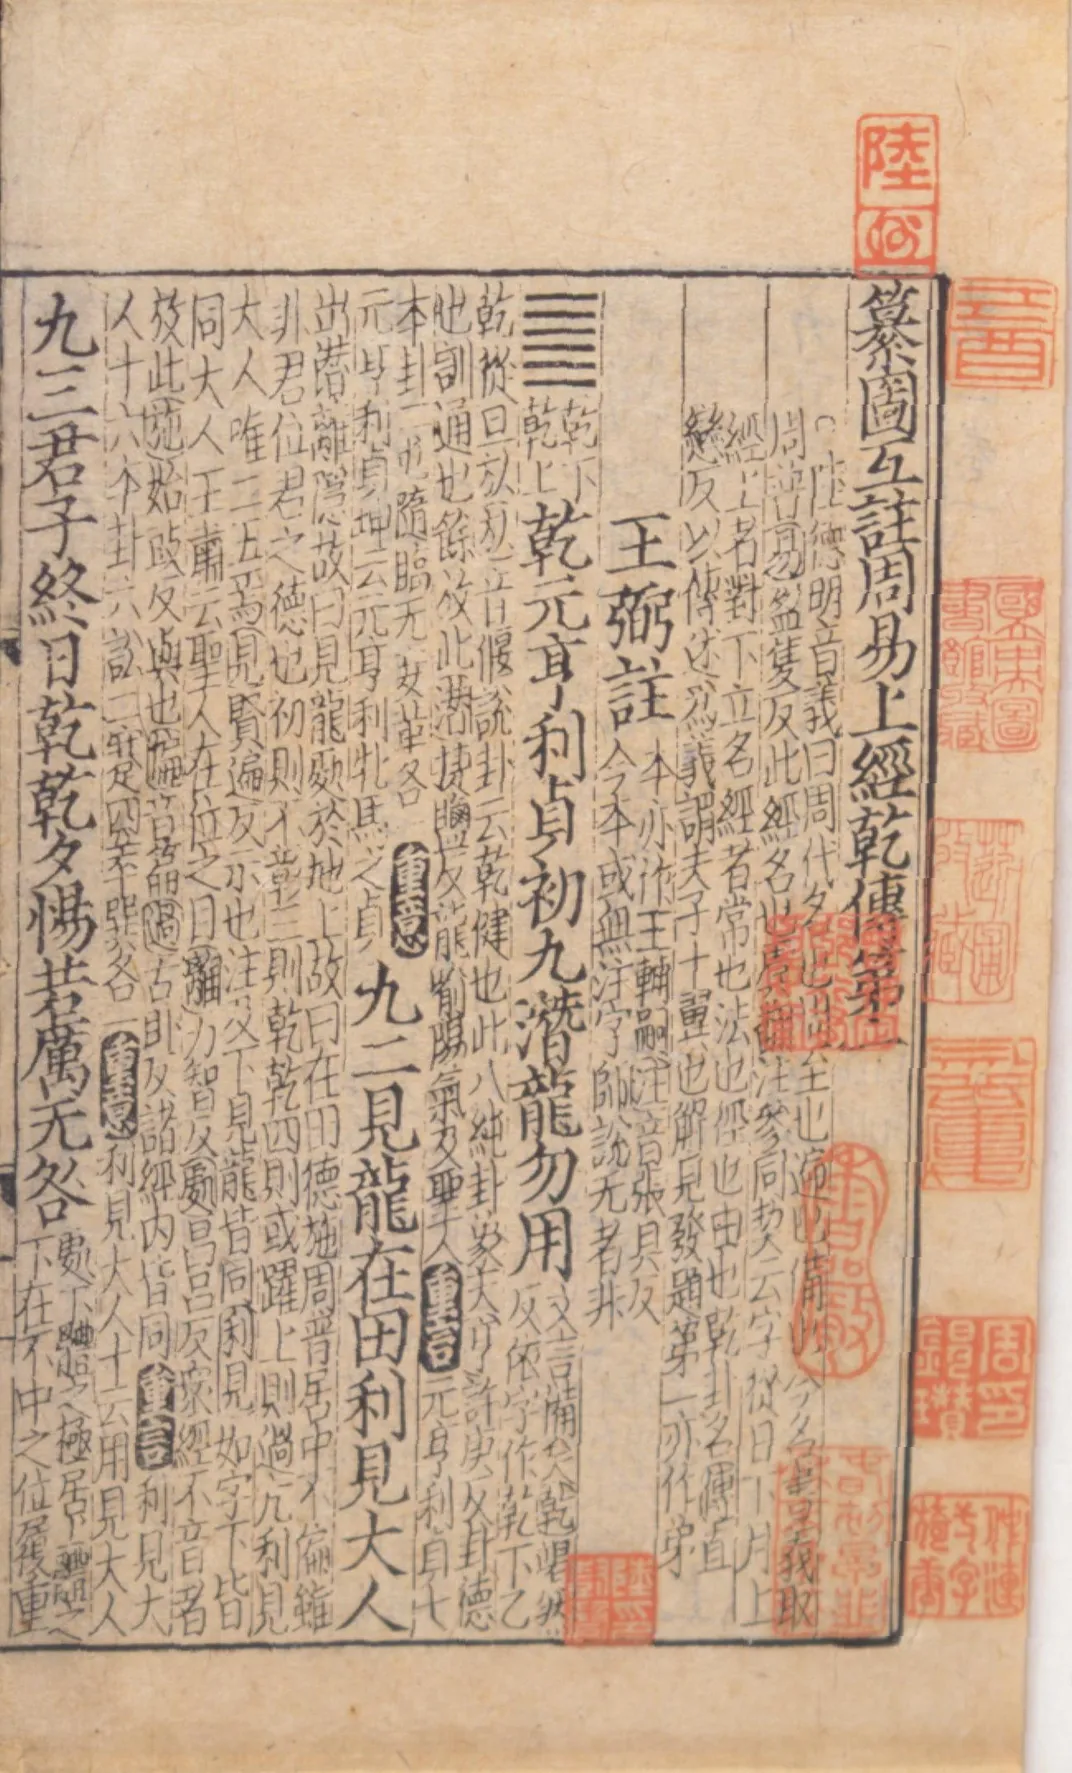 纂圖互註周易上經乾傳第一
陸德明音義曰周代名也周至也遍也備也今名書義取
周普易盈隻反此經名也虞翻注參同契云字從日下月上
經上者對下立名經者常也法也徑也由也乾卦名渾直
戀反以傳述爲義謂夫子十翼也解見發題第一亦作弟
王弼註
本亦作王輔嗣注音張具反
今本或無注字師說无者非
乾下
乾上
乾元亨利貞初九潛龍勿用
文言備矣乾竭然
反依字作乾下乙
乾從旦㫃㫃音偃說卦云乾健也此八純卦象天亨許庚反卦德
也訓通也餘放此潛捷鹽反龍喻陽氣及聖人
重言
元亨利貞七
本卦一屯隨臨无妄革各一
元亨利貞坤云元亨利牝馬之貞
重意
九二見龍在田利見大人
出潛離隱故曰見龍處於地上故曰在田德施周普居中不偏雖
非君位君之德也初則不彰三則乾乾四則或躍上則過亢利見
大人唯二五焉見賢遍反示也注及下見龍皆同利見如字下皆
同大人王肅云聖人在位之目離力智反處昌呂反衆經不音者
放此施始豉反與也偏音篇過古卧反諸經內皆同
重言
利見大
人十六本卦六訟二蹇四萃巽各一
重意
利見大人十云用見大人
九三君子終日乾乾夕惕若厲无咎
處下體之極居上體之
下在不中之位履重
陸
周